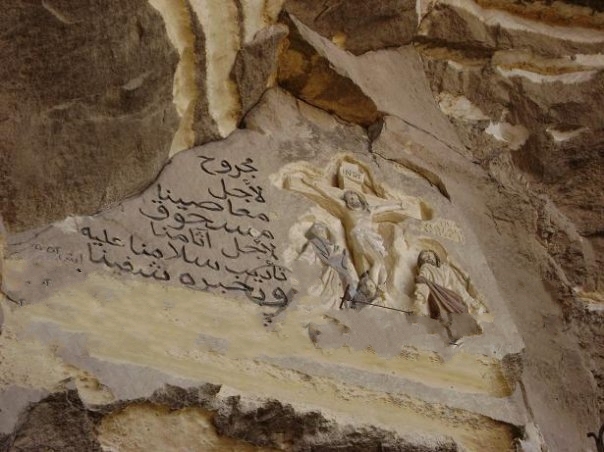 مجروح
لأجل
معاصينا
مسحوق
لأجل اثامنا
تأديب سلامنا عليه
وبحبره شفينا
INRI